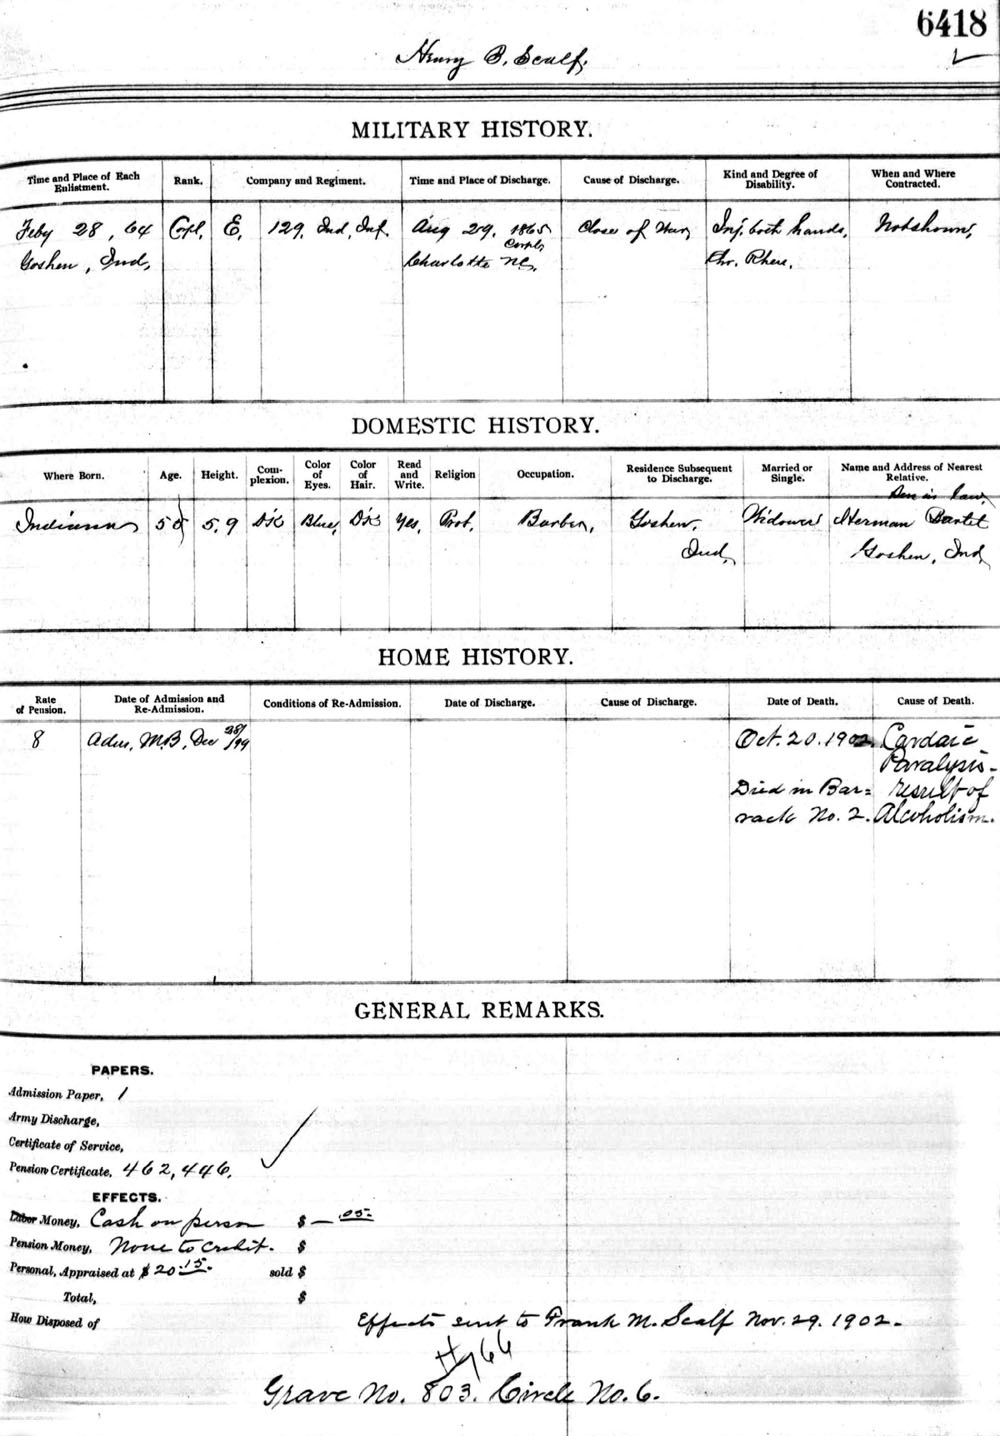 6418
Henry B. Scalf,
MILITARY HISTORY.
Time and Place of Each Enlistment. Rank. Company and Regiment. Time and Place of Discharge. Cause of Discharge. Kind and Degree of Disability. When and Where Contracted.
Feby 28, 64 Corpl, E, 129, Ind, Inf. Aug 29, 1865 Close of War, Inj. both hands, Not shown,
Corpl,
Goshen, Ind, Charlotte NC, Chr. Rheu.
DOMESTIC HISTORY.
Where Born. Age. Height. Complexion. Color of Eyes. Color of Hair. Read and Write. Religion Occupation. Residence Subsequent to Discharge. Married or Single. Name and Address of Nearest Relative.
Son in law,
Indiana 5, 9 D'k Blue, D'k Yes, Prot, Barber, Goshen, Widower Herman Bartel
Ind, Goshen, Ind,
HOME HISTORY.
Rate of Pension. Date of Admission and Re-Admission. Conditions of Re-Admission. Date of Discharge. Cause of Discharge. Date of Death. Cause of Death.
8 Adm, M.B, Dec 28/99 Oct. 20. 1902. Cardaic
Paralysis-
Died in Bar= result of
rack No. 2. Alcoholism.
GENERAL REMARKS.
PAPERS.
Admission Paper, 1
Army Discharge,
Certificate of Service,
Pension Certificate, 462,446.
EFFECTS.
Labor Money, Cash on person $ — .05-
Pension Money, None to credit. $
Personal, Appraised at $ 20.15- sold $
Total, $
How Disposed of Effects sent to Frank M. Scalf Nov. 29. 1902.
Grave No. 803. Circle No. 6.